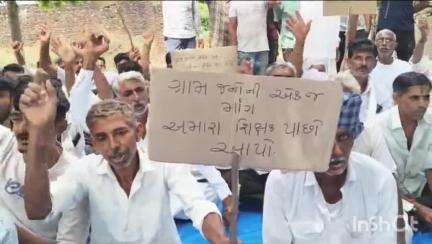 ગ્રામ જનોની એક જ
માંગ
અમારા શિક્ષક પાછો
આપો.
InShOt